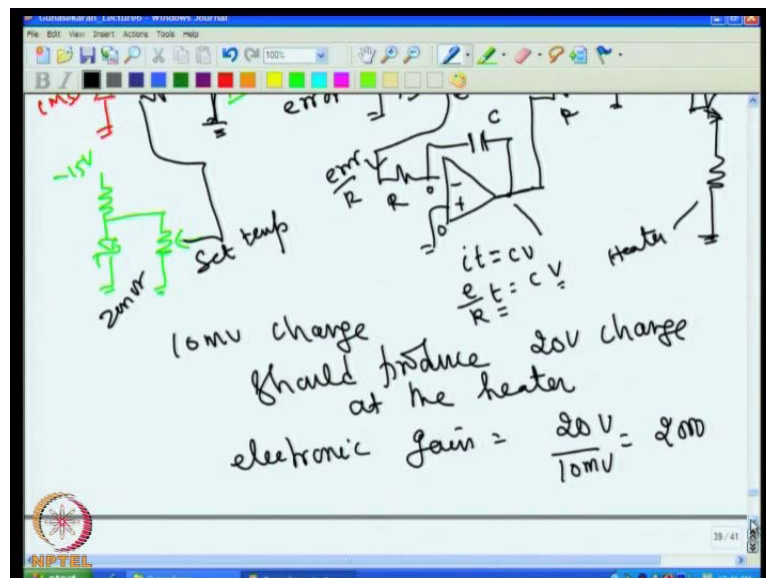 Gunasekaran_Lecture6 - Windows Journal
File Edit View Insert Actions Tools Help
100%
B I
error
C
R
-15V
err
R
R
C
-
+
0
0
Set temp
zener
it = CV
e/R t = C V
Heater
10mv change
Should produce 20V change
at the heater
electronic gain = 20V/10mV = 2000
39 / 41
NPTEL
start